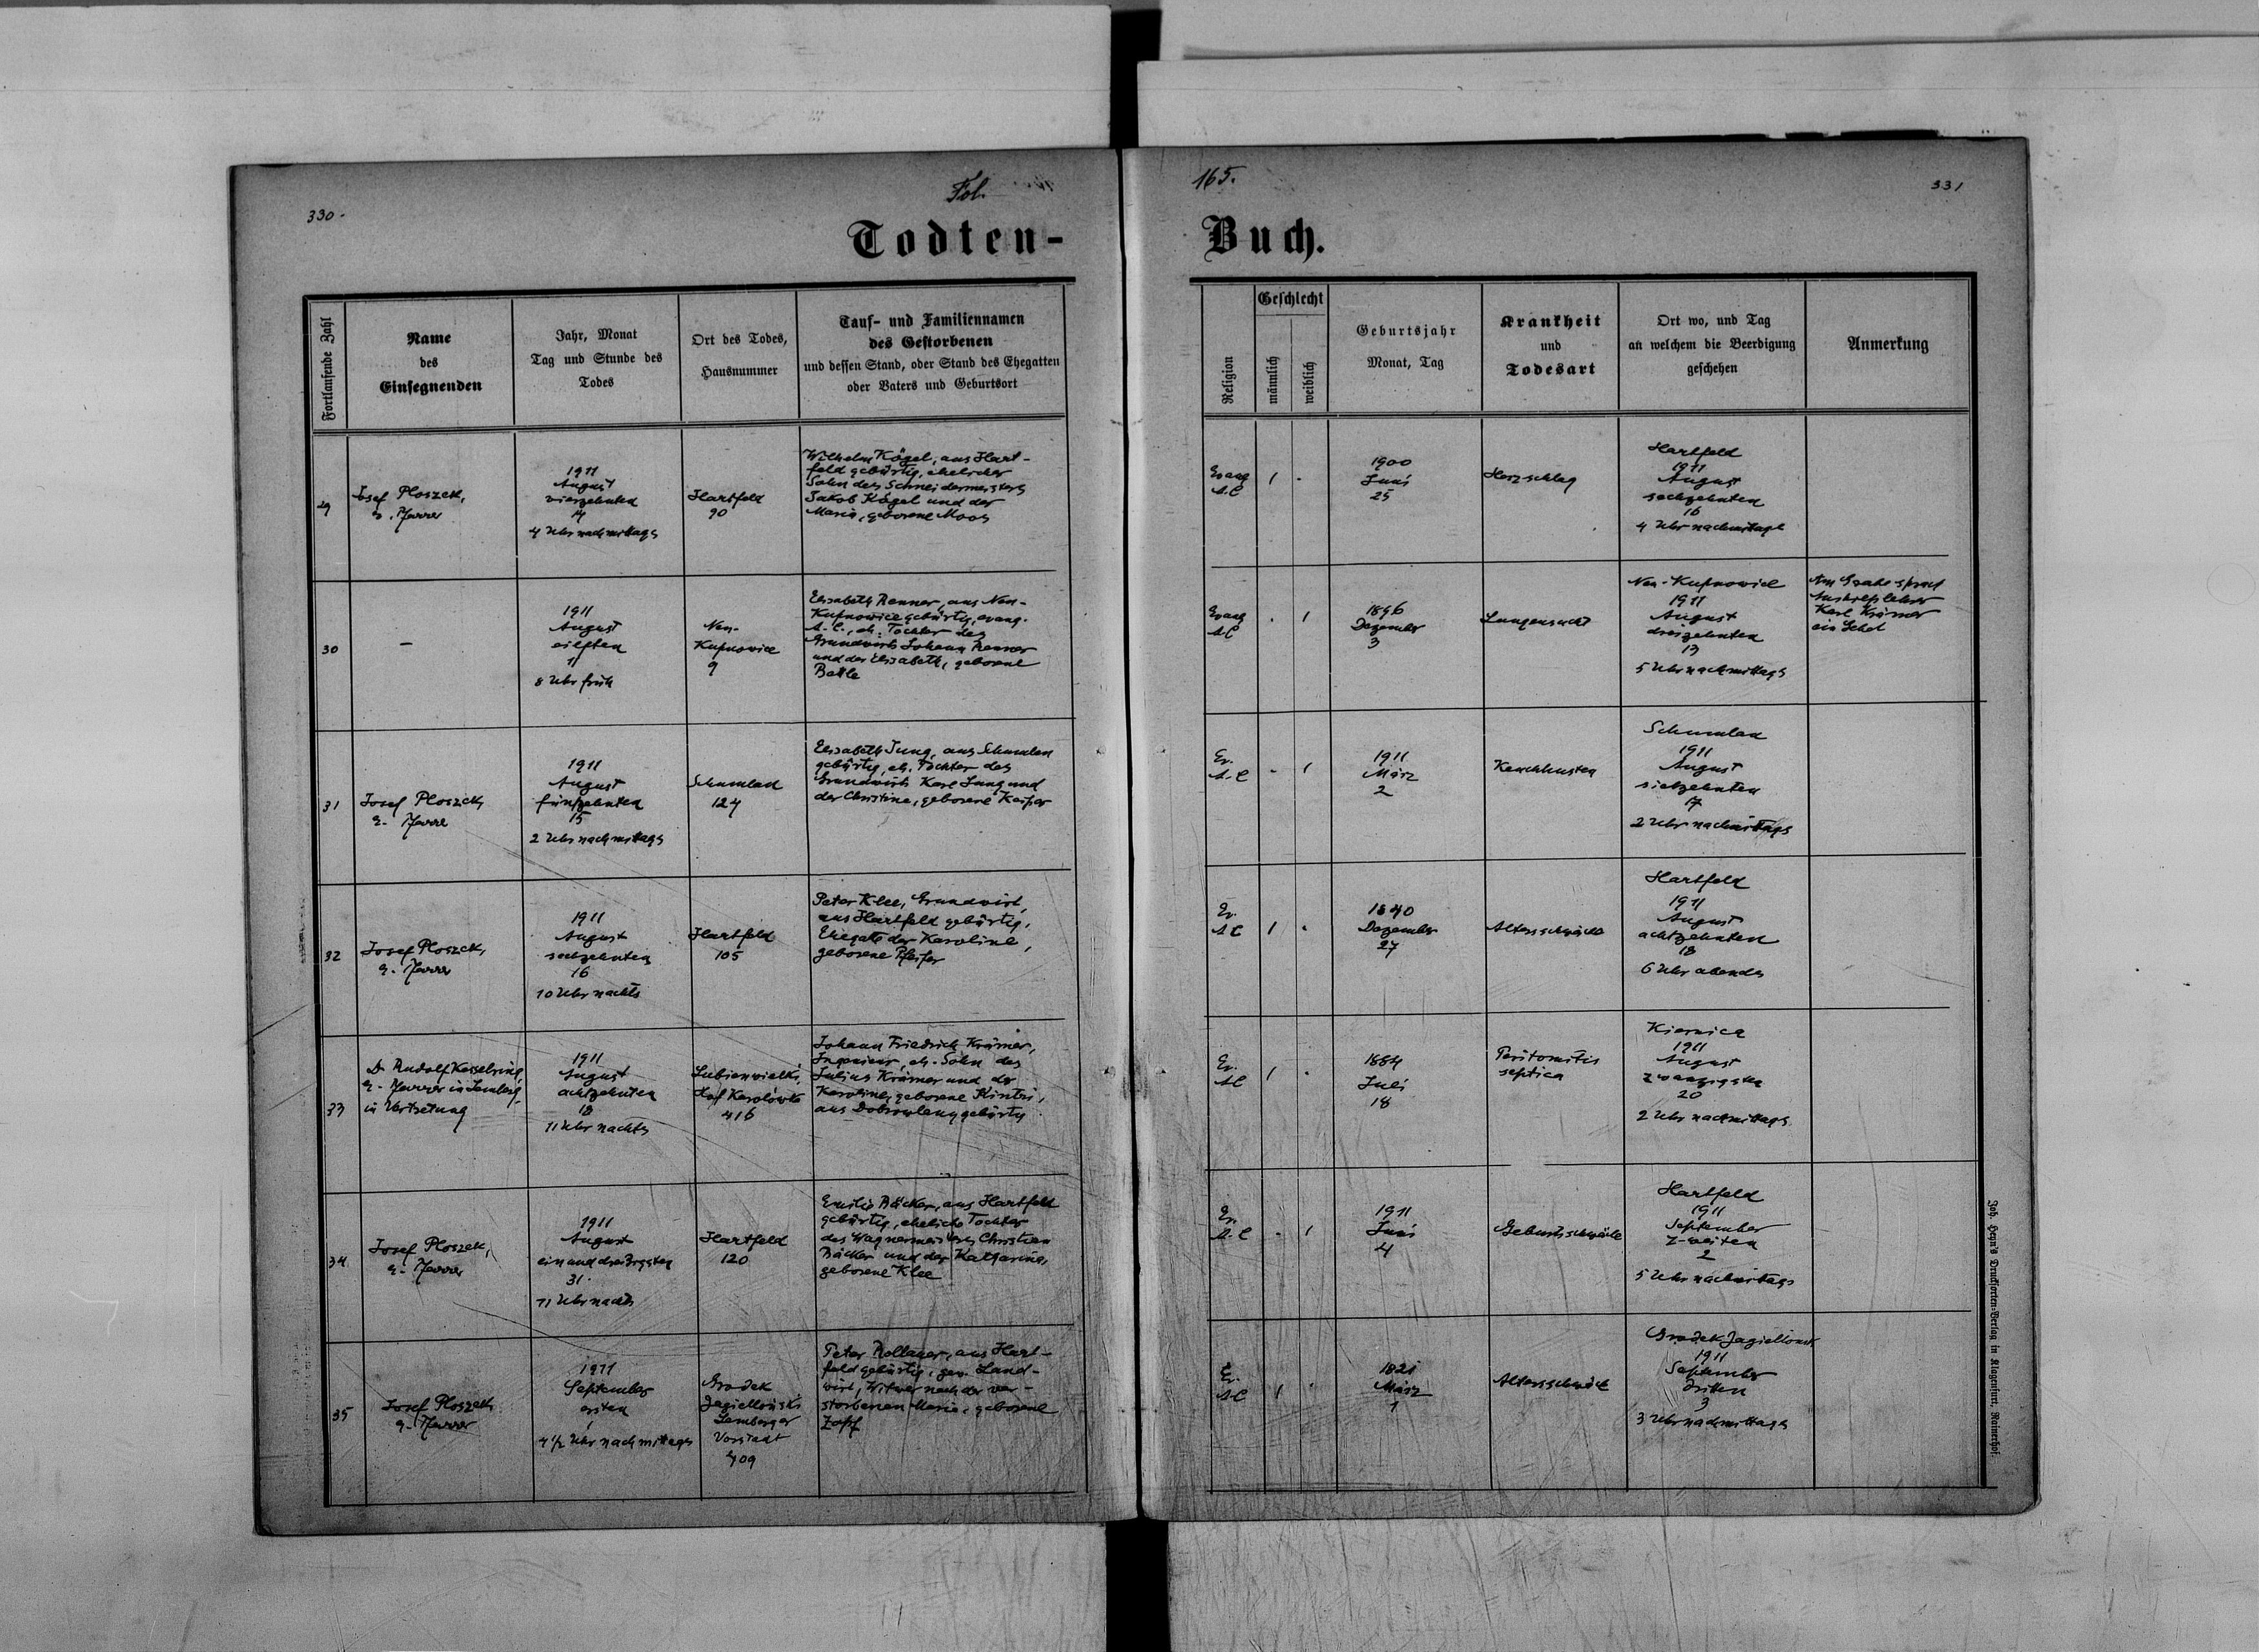 330.
Fol.
165.
331
Todten-
Buch.
Fortlaufende Zahl
Name
des
Einsegnenden
Jahr, Monat
Tag und Stunde des
Todes
Ort des Todes,
Hausnummer
Tauf- und Familiennamen
des Gestorbenen
und dessen Stand, oder Stand des Ehegatten
oder Vaters und Geburtsort
Religion
Geschlecht
männlich
weiblich
Geburtsjahr
Monat, Tag
Krankheit
und
Todesart
Ort wo, und Tag
an welchem die Beerdigung
geschehen
Anmerkung
29
Josef Ploszek,
e. Pfarrer
1911
August
vierzehnten
14
4 Uhr nachmittags
Hartfeld
90
Wilhelm Kögel, aus Hart-
feld gebürtig, ehelicher
Sohn des Schneidermeisters
Jakob Kögel und der
Maria, geborene Moos
Evang
A.C
1
.
1900
Juni
25
Herzschlag
Hartfeld
1911
August
sechzehnten
16
4 Uhr nachmittags
30
—
1911
August
eilften
11
8 Uhr früh
Neu-
Kupnowice
9
Elisabeth Renner, aus Neu-
Kupnowice gebürtig, evang.
A.C., eh. Tochter des
Grundwirts Johann Renner
und der Elisabeth, geborene
Batle
Evang
A.C
.
1
1896
Dezember
3
Lungensucht
Neu-Kupnowice
1911
August
dreizehnten
13
5 Uhr nachmittags
Am Grabe sprach
Aushilfslehrer
Karl Krämer
ein Gebet
31
Josef Ploszek,
e. Pfarrer
1911
August
fünfzehnten
15
2 Uhr nachmittags
Schumlau
124
Elisabeth Jung, aus Schumlau
gebürtig, eh. Tochter des
Grundwirts Karl Jung und
der Christine, geborene
Ev.
A.C
.
1
1911
März
2
Keuchhusten
Schumlau
1911
August
siebzehnten
17
2 Uhr nachmittags
32
Josef Ploszek,
e. Pfarrer
1911
August
sechzehnten
16
10 Uhr nachts
Hartfeld
105
Peter Klee, Grundwirt,
aus Hartfeld gebürtig,
Ehegatte der Karoline,
geborene Pfeifer
Ev.
A C
1
.
1840
Dezember
27
Altersschwäche
Hartfeld
1911
August
achtzehnten
18
6 Uhr abends
33
Dr Rudolf Kesselring,
e. Pfarrer in Lemberg,
in Vertretung
1911
August
achtzehnten
18
11 Uhr nachts
Lubien wielki,
Hof Karolówka
416
Johann Friedrich Krämer,
Ingenieur, eh. Sohn des
Julius Krämer und der
Karoline, geborene Kintzi,
aus Dobrowlany gebürtig
Ev.
AC
1
.
1884
Juli
18
Peritonitis
septica
Kiernica
1911
August
zwanzigsten
20
2 Uhr nachmittags
34
Josef Ploszek,
e. Pfarrer
1911
August
einunddreißigsten
31.
11 Uhr nachts
Hartfeld
120
Emilie Bäcker, aus Hartfeld
gebürtig, eheliche Tochter
des Wagnermeisters Christian
Bäcker und der Katharina,
geborene Klee
Ev.
A.C
.
1
1911
Juni
4
Geburtsschwäche
Hartfeld
1911
September
zweiten
2
5 Uhr nachmittags
35
Josef Ploszek
e. Pfarrer
1911
September
ersten
1
4 1/2 Uhr nachmittags
Grodek
Jagielloński
Lemberger
Vorstadt
409
Peter Rollauer, aus Hart-
feld gebürtig, gew. Land-
wirt, Witwer nach der ver-
storbenen Maria, geborene
Zopf
Ev.
A C
1
.
1821
März
1
Altersschwäche
Grodek Jagiellonsk
1911
September
dritten
3
3 Uhr nachmittags
Joh. Heyn's Drucksorten-Verlag in Klagenfurt, Rainerhof.